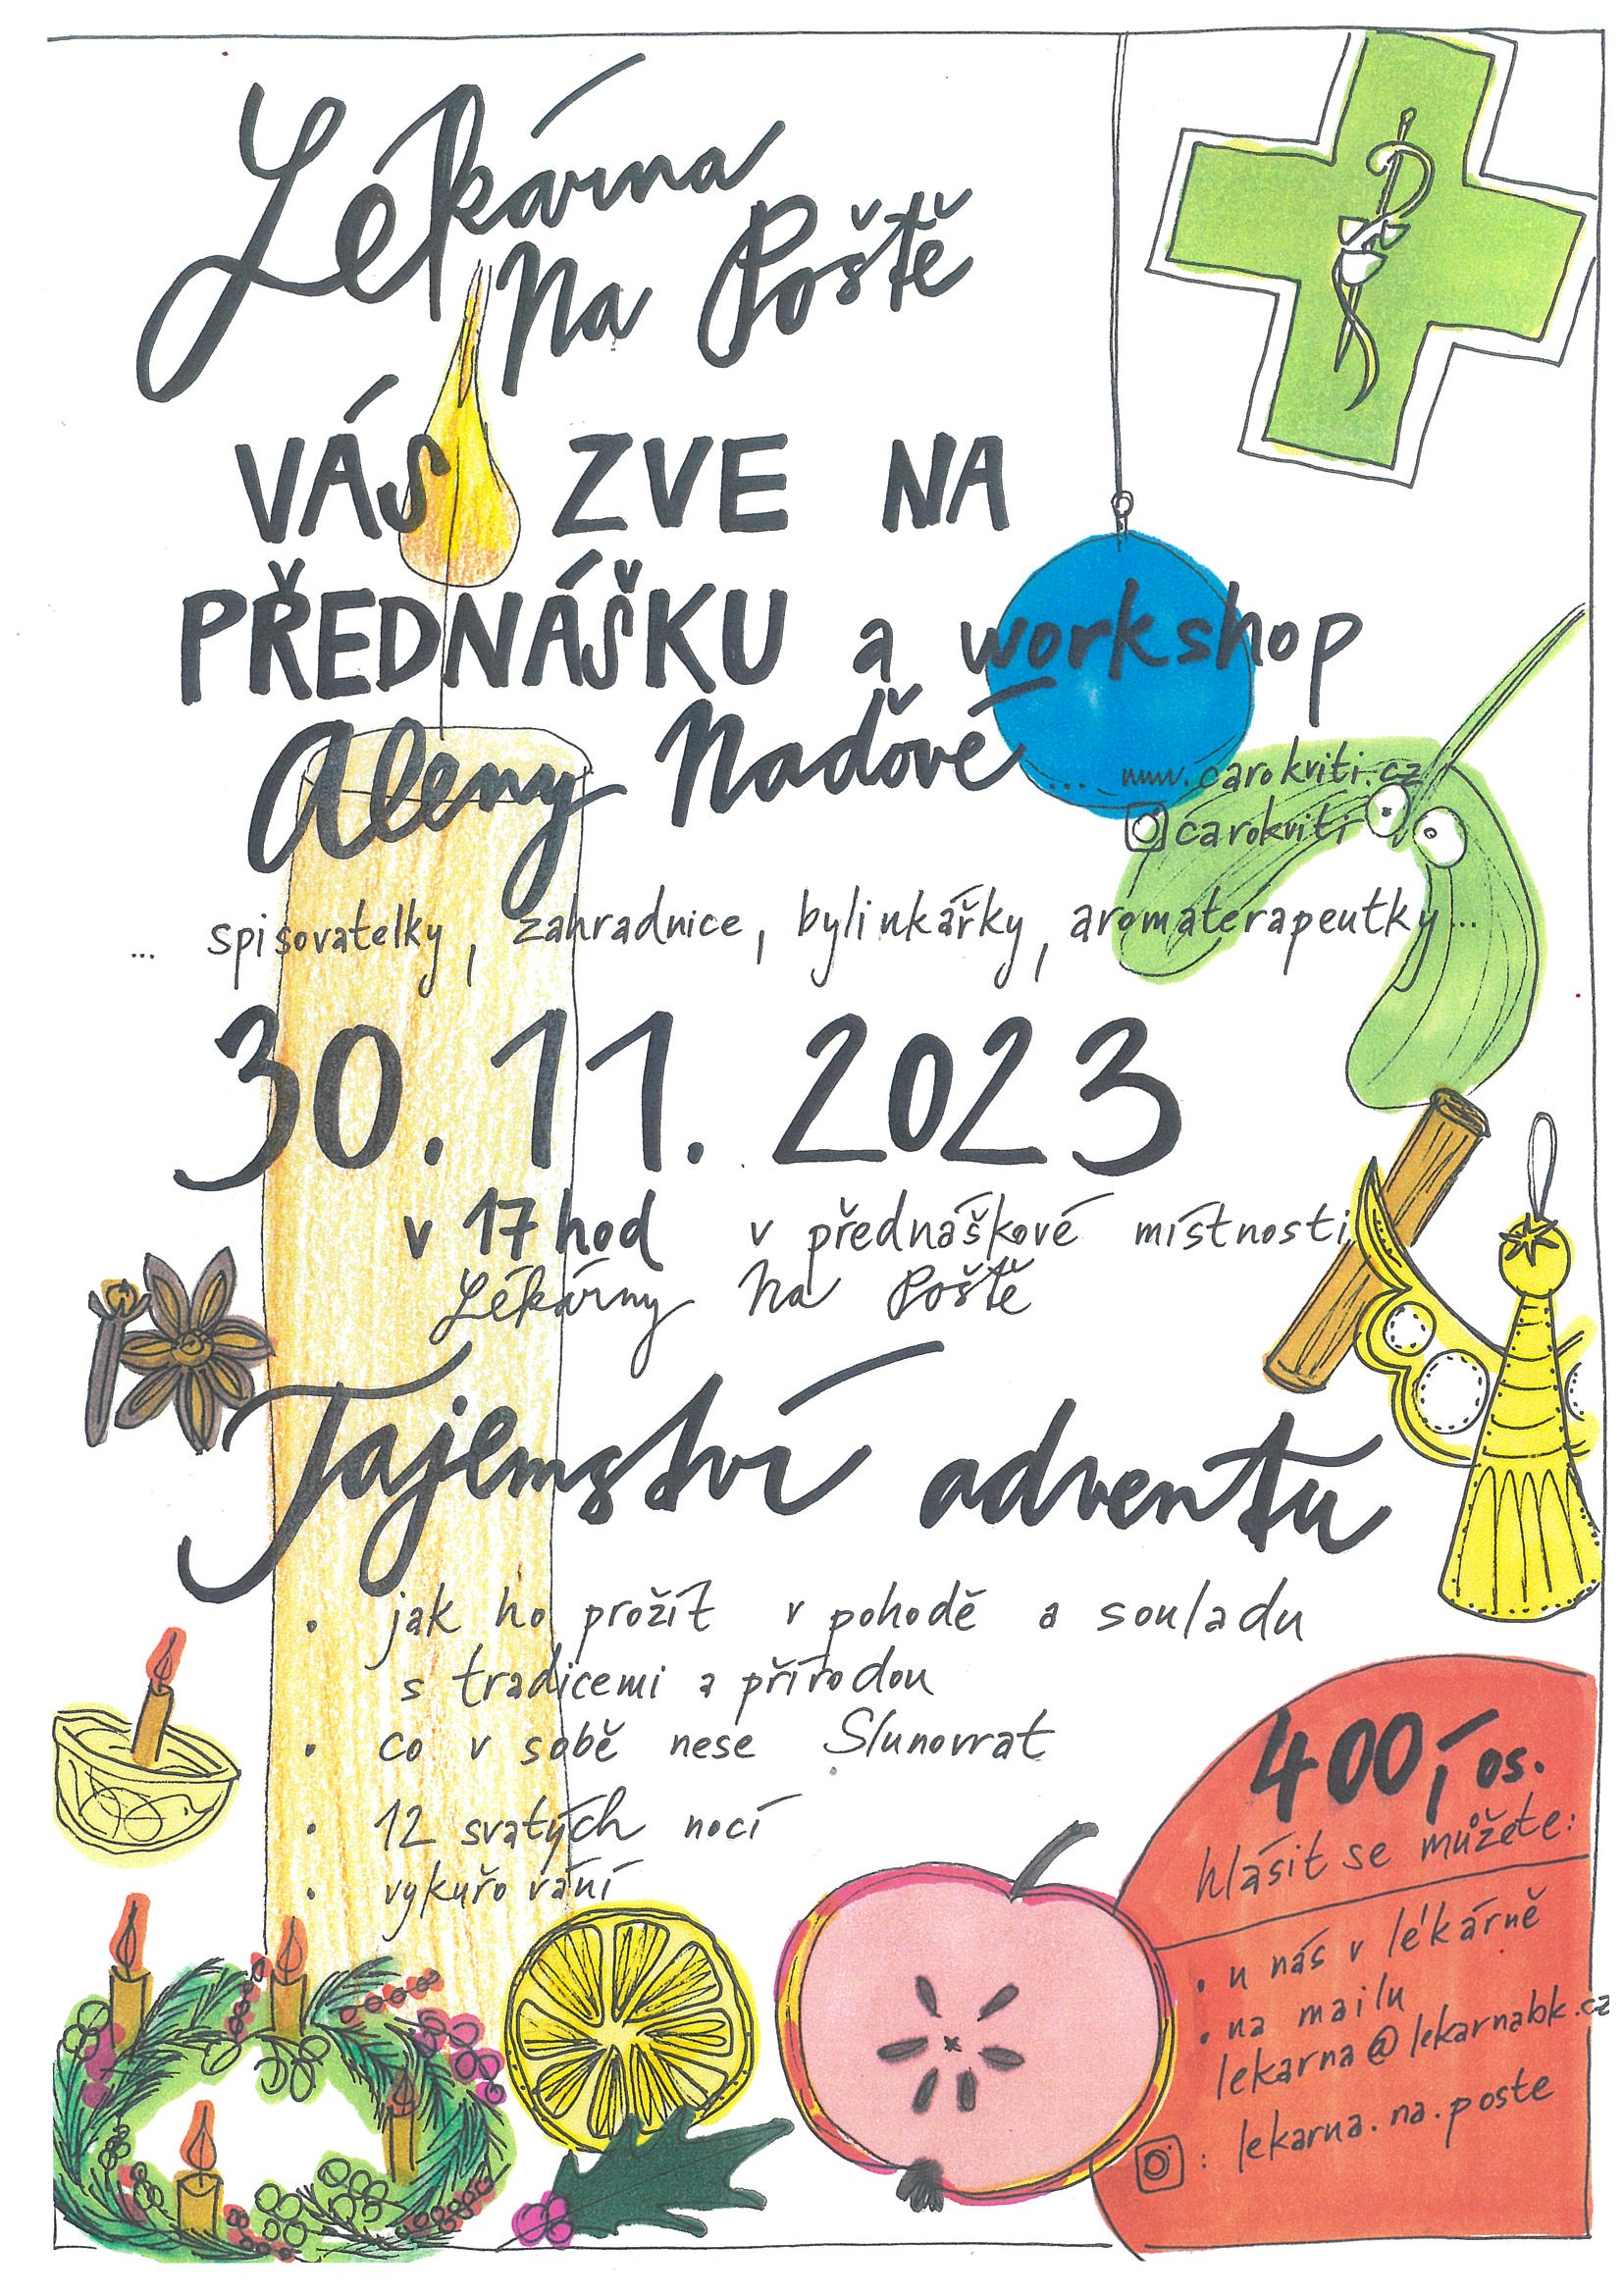 Lékárna
Na Poště
VÁS ZVE NA
PŘEDNÁŠKU a workshop
Aleny Naďové
... www.carokviti.cz
carokviti
... spisovatelky, zahradnice, bylinkářky, aromaterapeutky...
30. 11. 2023
v 17 hod v přednáškové místnosti
Lékárny Na Poště
Tajemství adventu
• jak ho prožít v pohodě a souladu
s tradicemi a přírodou
• co v sobě nese Slunovrat
• 12 svatých nocí
• vykuřování
400,- os.
hlásit se můžete:
• u nás v lékárně
• na mailu
lekarna@lekarnabk.cz
: lekarna.na.poste